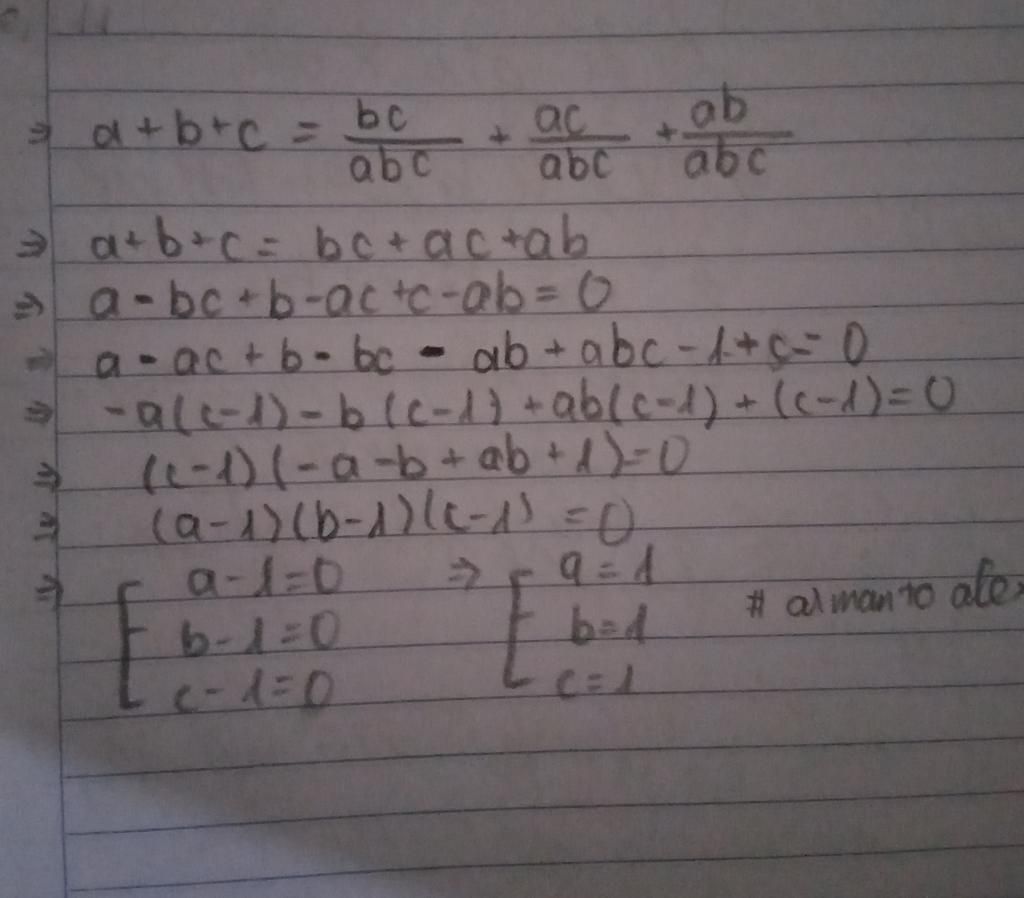 ⇒ a+b+c = bc/abc + ac/abc + ab/abc
⇒ a+b+c = bc+ac+ab
⇒ a-bc+b-ac+c-ab=0
⇒ a-ac+b-bc-ab+abc-1+c=0
⇒ -a(c-1)-b(c-1)+ab(c-1)+(c-1)=0
⇒ (c-1)(-a-b+ab+1)=0
⇒ (a-1)(b-1)(c-1)=0
⇒ [ a-1=0 ⇒ [ a=1
b-1=0 b=1 #
c-1=0 c=1